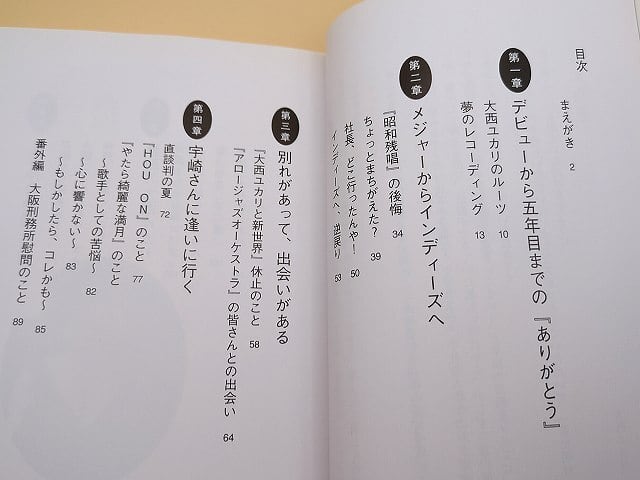 目次
まえがき 2
第一章 デビューから五年目までの『ありがとう』
大西ユカリのルーツ 10
夢のレコーディング 13
第二章 メジャーからインディーズへ
『昭和残唱』の後悔 34
ちょっとまちがえた? 39
社長、どこ行ったんや! 50
インディーズへ、逆戻り 53
第三章 別れがあって、出会いがある
『大西ユカリと新世界』休止のこと 58
『アロージャズオーケストラ』の皆さんとの出会い 64
第四章 宇崎さんに逢いに行く
直談判の夏 72
『HOU ON』のこと 77
『やたら綺麗な満月』のこと
〜歌手としての苦悩〜 82
〜心に響かない〜 83
〜もしかしたら、コレかも〜 85
番外編 大阪刑務所慰問のこと 89